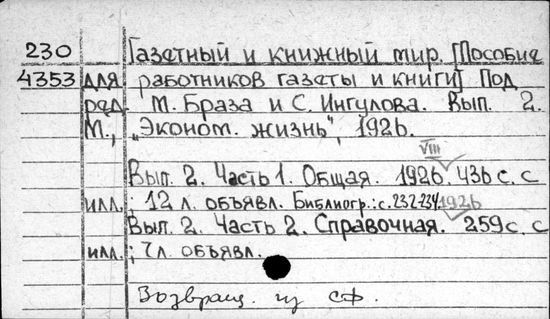 230 Газетный и книжный мир. [Пособие
4353 для работников газеты и книги] Под
ред. М. Браза и С. Ингулова. Вып. 2.
М., „Эконом. жизнь", 1926.
VIII
Вып. 2. Часть 1. Общая. 1926. 436 с. с
илл.; 12 л. объявл. Библиогр.: с. 232-234. 1926
Вып. 2. Часть 2. Справочная. 259 с. с
илл.; 7 л. объявл.
Возвращ. из СФ.